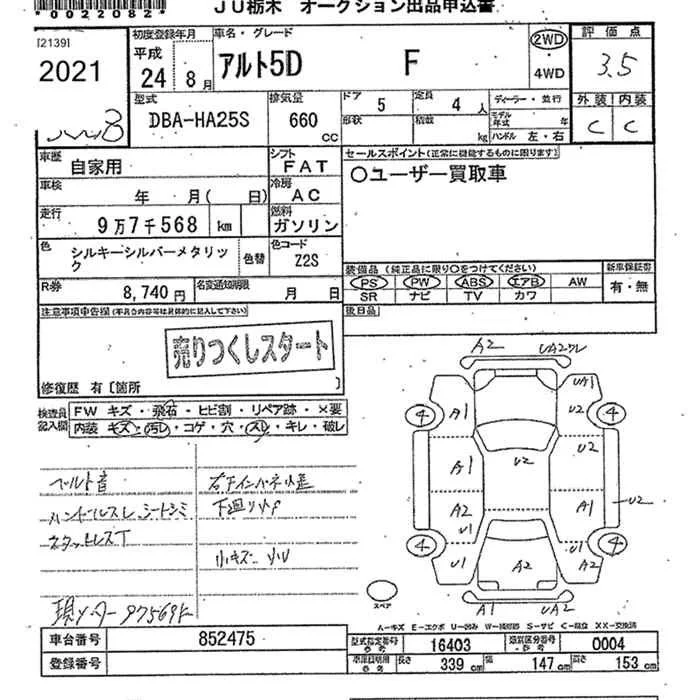 *0022082*
JU栃木 オークション出品申込書
[2139]
2021
初度登録年月
平成
24 8月
車名・グレード
アルト5D F
2WD
4WD
評価点
3.5
外装 内装
C C
型式
DBA-HA25S
排気量
660 cc
ドア 5
定員 4 人
形状
積載 kg
ディーラー・並行
モデル年式 年
ハンドル 左・右
車歴
自家用
シフト
FAT
車検
年 月( 日)
冷房
AC
走行
9万7千568 km
燃料
ガソリン
色
シルキーシルバーメタリック
色替
色コード
Z2S
R券
8,740 円
名変通知期限
月 日
セールスポイント(正常に機能するものに限ります)
○ユーザー買取車
装備品(純正品に限り○をつけてください)
PS PW ABS エアB AW
SR ナビ TV カワ
新車保証書
有・無
後日品
注意事項申告欄(不具合内容等は具体的に記入して下さい)
売りつくしスタート
修復歴 有〔箇所 〕
検査員記入欄
FW キズ・飛石・ヒビ割・リペア跡・×要
内装 キズ・汚レ・コゲ・穴・スレ・キレ・破レ
ベルト音
ハンドルスレ シートシミ
スタットレスT
下廻り
小キズ
現メーター 97569K
A2 UA2
A1 A1 A2 U1 U1
U2 A2
UA1 U2 U2 A1 U1 A2
U2
4 4 4 4
A1 UA2
スペア
A-キズ E-エクボ U-凹み W-補修跡 S-サビ C-腐食 XX-交換済
車台番号 852475
登録番号
型式指定番号 参考 16403
類別区分番号 参考 0004
車庫証明用 参考 長さ 339 cm 幅 147 cm 高さ 153 cm